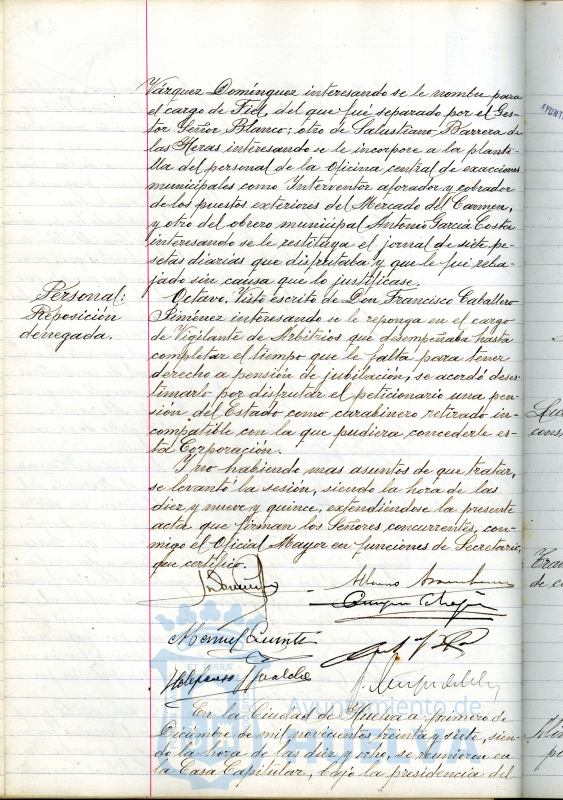 Vázquez Domínguez interesando se le nombre para
el cargo de Fiel, del que fué separado por el Ges-
tor Señor Blanco; otro de Salustiano Barrera de
las Heras interesando se le incorpore a la planti-
lla del personal de la Oficina central de exacciones
municipales como Interventor aforador y cobrador
de los puestos exteriores del Mercado del Carmen,
y otro del obrero municipal Antonio García Costa
interesando se le restituya el jornal de siete pe-
setas diarias que disfrutaba y que le fué reba-
jado sin causa que lo justificase.
Personal:
Reposición
denegada.
Octavo, Visto escrito de Don Francisco Caballero
Jiménez interesando se le reponga en el cargo
de Vigilante de Arbitrios que desempeñaba hasta
completar el tiempo que le falta para tener
derecho a pensión de jubilación, se acordó deses-
timarlo por disfrutar el peticionario una pen-
sión del Estado como carabinero retirado in-
compatible con la que pudiera concederle es-
ta Corporación.
Y no habiendo mas asuntos de que tratar,
se levantó la sesión, siendo la hora de las
diez y nueve y quince, extendiéndose la presente
acta que firman los Señores concurrentes, con-
migo el Oficial Mayor en funciones de Secretario,
que certifico.
Manuel
Ildefonso
Ayuntamiento de
HUELVA
En la Ciudad de Huelva a primero de
Diciembre de mil novecientos treinta y siete, sien-
do la hora de las diez y ocho, se reunieron en
la Casa Capitular, bajo la presidencia del